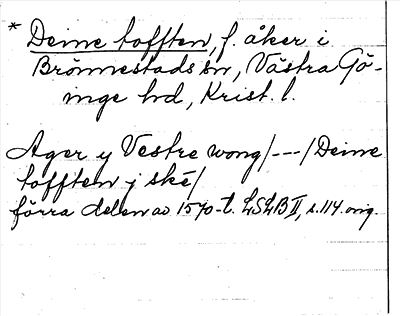 * Deine tofften, f. åker i
Brönnestads sn, Västra Gö-
inge hd, Krist. l.
Ager y Vestre wong/---/Deine
tofften j ské/
förra delen av 1570-t. LSLB II, s. 114. orig.